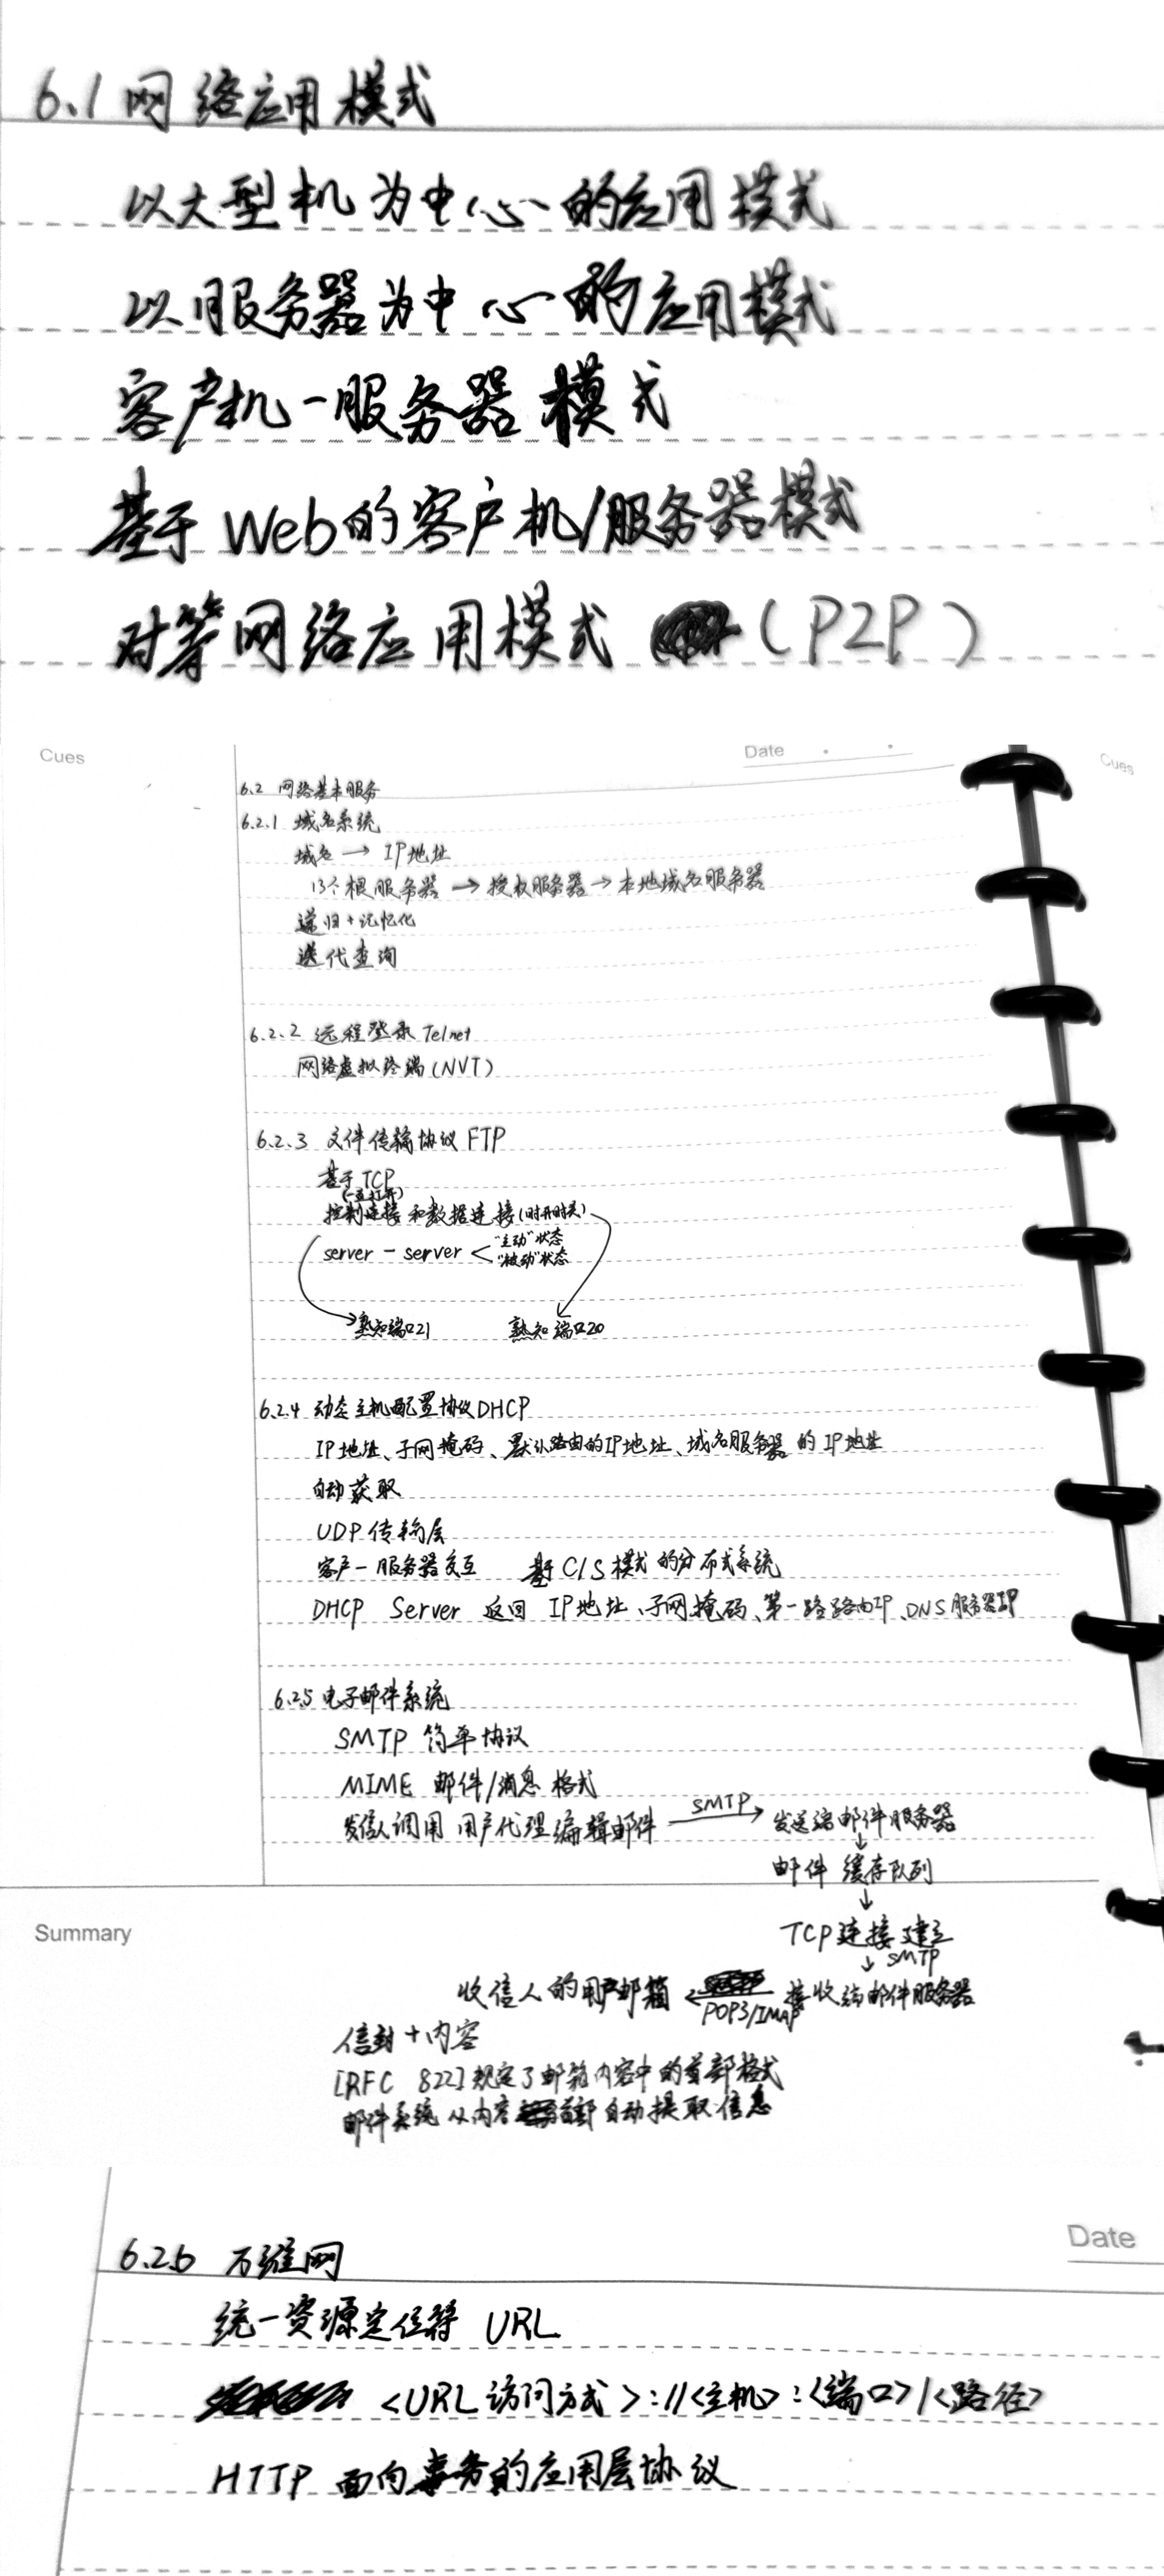 6.1 网络应用模式
以大型机为中心的应用模式
以服务器为中心的应用模式
客户机-服务器模式
基于Web的客户机/服务器模式
对等网络应用模式 (P2P)
Cues
Date
Cues
6.2 网络基本服务
6.2.1 域名系统
域名 → IP地址
13个根服务器 → 授权服务器 → 本地域名服务器
递归+记忆化
迭代查询
6.2.2 远程登录 Telnet
网络虚拟终端(NVT)
6.2.3 文件传输协议 FTP
基于TCP
(一直打开)
控制连接和数据连接(时开时关)
server - server < "主动"状态
"被动"状态
熟知端口21 熟知端口20
6.2.4 动态主机配置协议DHCP
IP地址、子网掩码、默认路由的IP地址、域名服务器的IP地址
自动获取
UDP传输层
客户-服务器交互 基于C/S模式的分布式系统
DHCP Server 返回 IP地址、子网掩码、第一跳路由IP、DNS服务器IP
6.2.5 电子邮件系统
SMTP 简单协议
MIME 邮件/消息 格式
SMTP
发信人调用 用户代理编辑邮件 → 发送端邮件服务器
↓
邮件 缓存队列
↓
Summary
TCP连接建立
↓ SMTP
收信人的用户邮箱 ← 接收端邮件服务器
POP3/IMAP
信封+内容
[RFC 822]规定了邮箱内容中的首部格式
邮件系统从内容首部自动提取信息
Date
6.2.6 万维网
统一资源定位符 URL
<URL访问方式>://<主机>:<端口>/<路径>
HTTP 面向事务的应用层协议